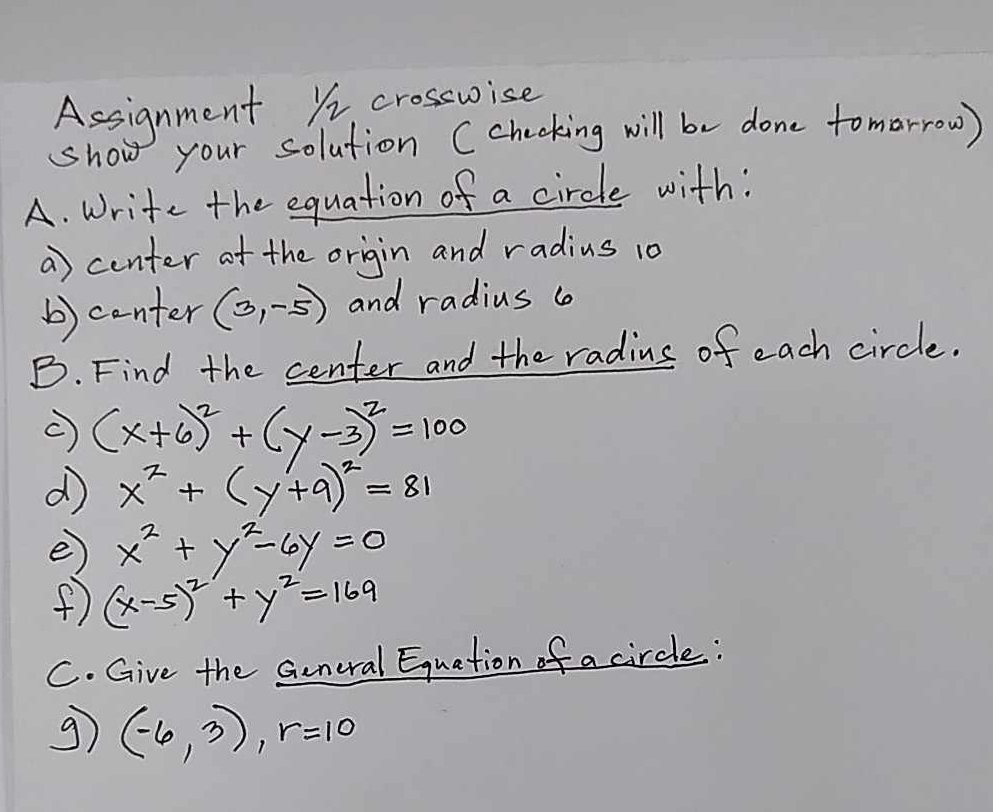 Assignment ½ crosswise
show your solution (checking will be done tomarrow)
A. Write the equation of a circle with:
a) center at the origin and radius 10
b) center (3,-5) and radius 6
B. Find the center and the radius of each circle.
c) (x+6)² + (y-3)² = 100
d) x² + (y+9)² = 81
e) x² + y²-6y = 0
f) (x-5)² + y² = 169
C. Give the General Equation of a circle:
g) (-6, 3), r=10